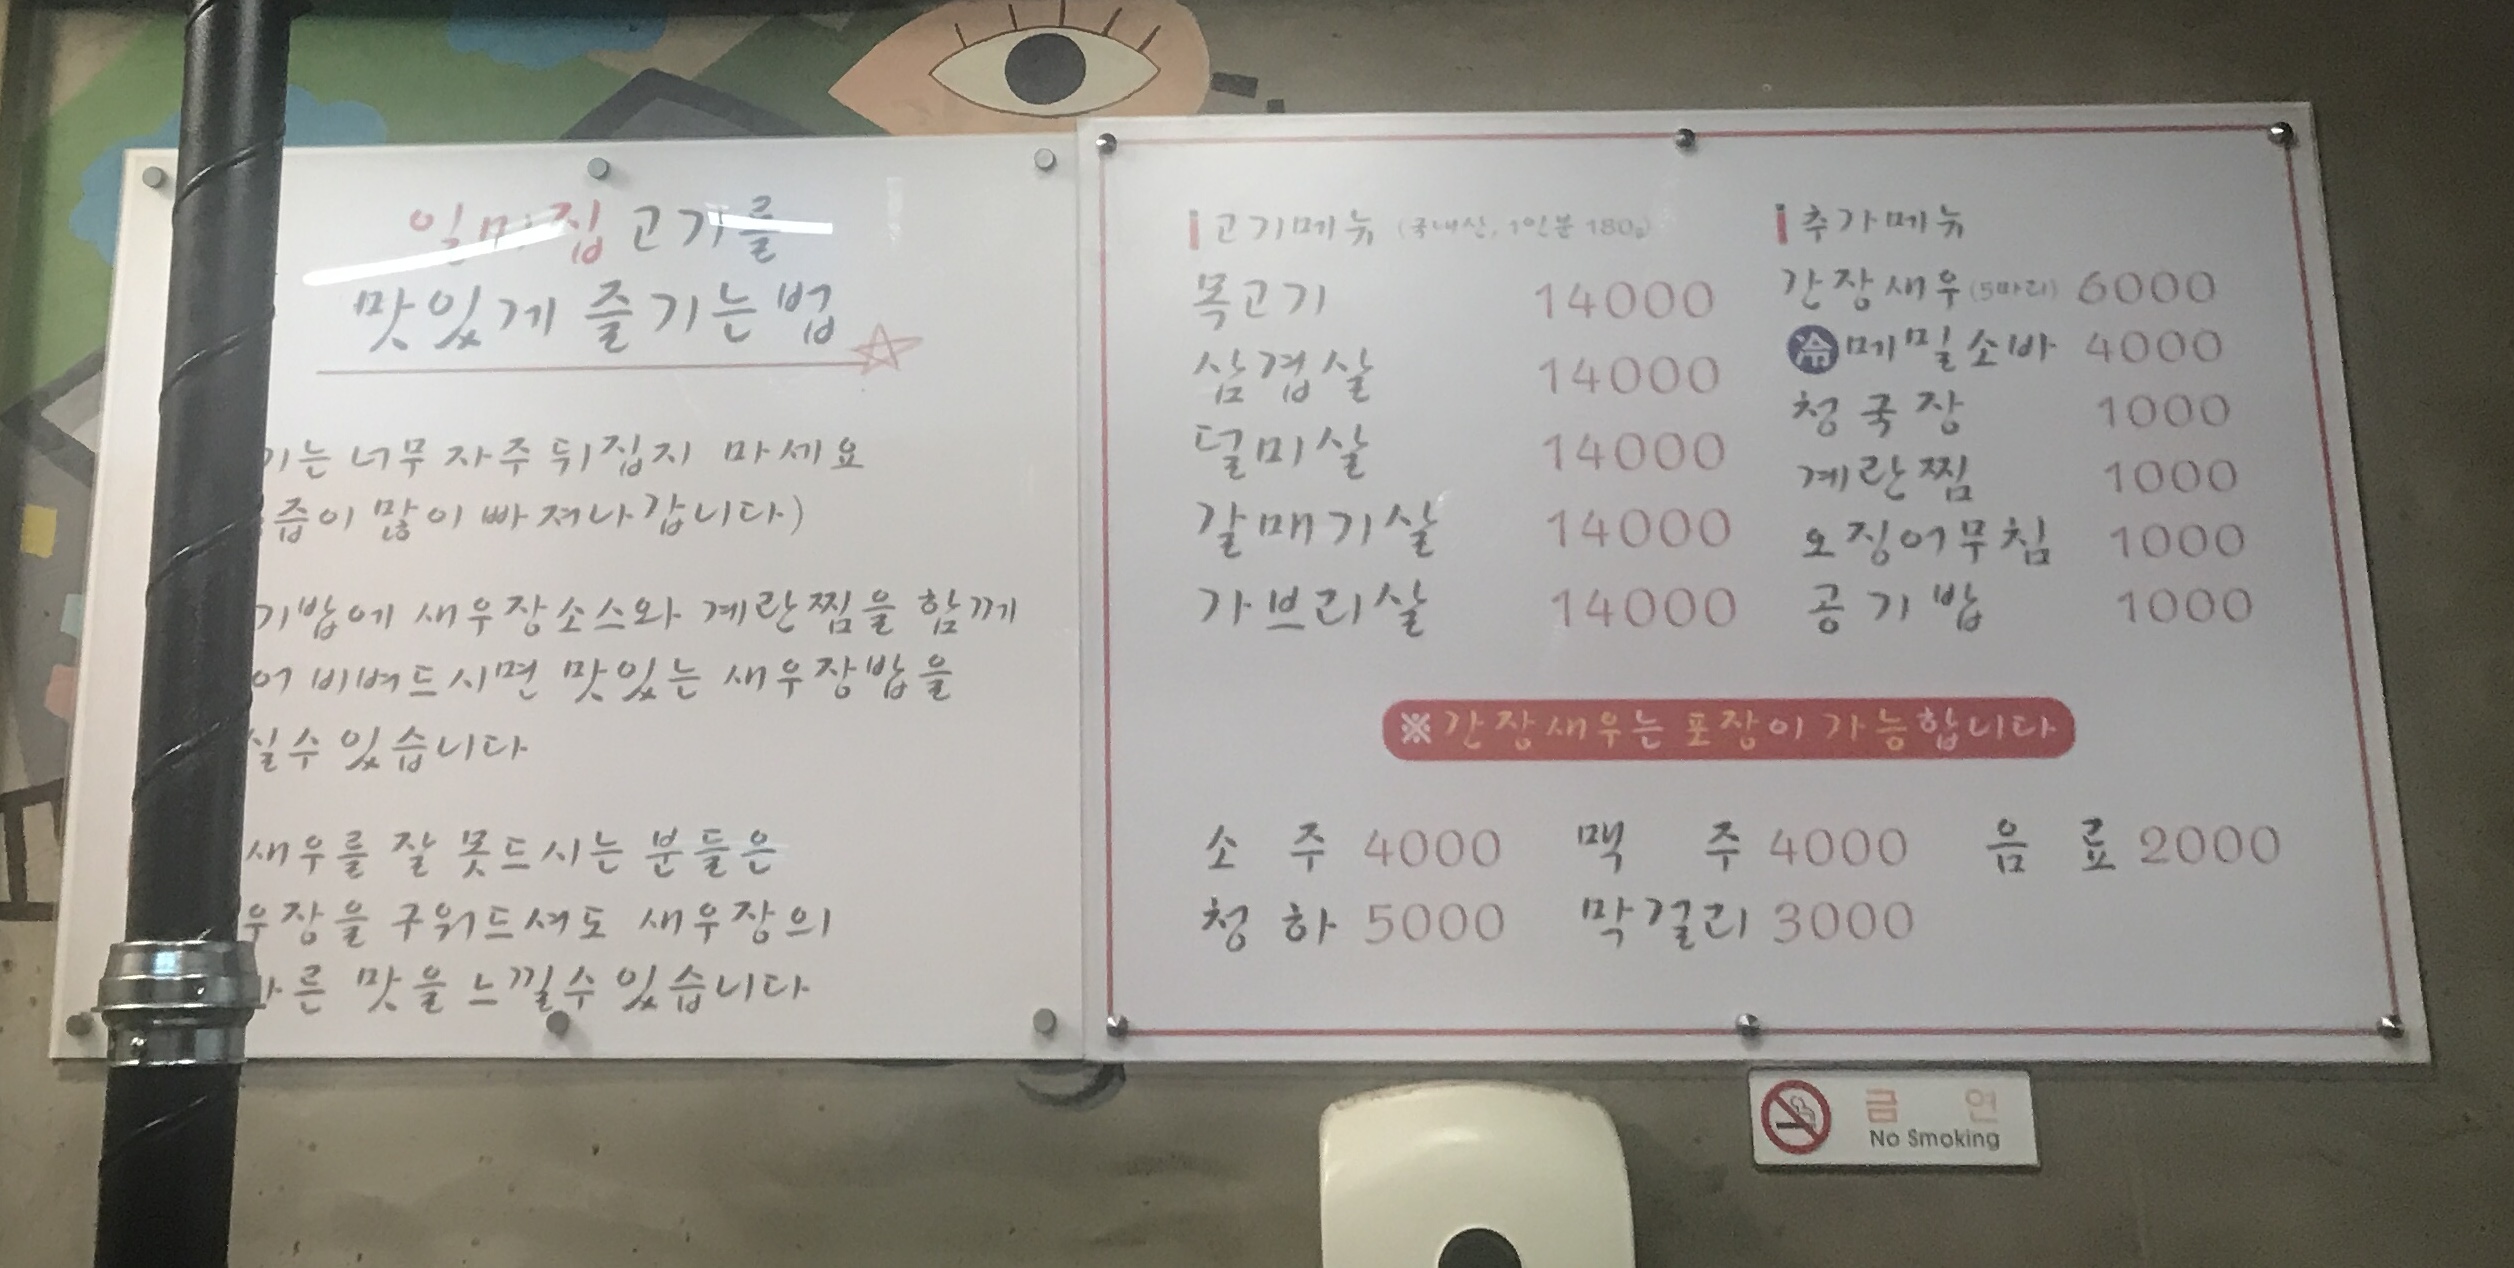 일미집 고기를
맛있게 즐기는 법
너무 자주 뒤집지 마세요
많이 빠져나갑니다)
새우장소스와 계란찜을 함께
비벼드시면 맛있는 새우장밥을
있습니다
새우를 잘 못드시는 분들은
구워드셔도 새우장의
맛을 느낄수 있습니다
고기메뉴 (국내산, 1인분 180g)
목고기 14000
삼겹살 14000
덜미살 14000
갈매기살 14000
가브리살 14000
추가메뉴
간장새우(5마리) 6000
冷메밀소바 4000
청국장 1000
계란찜 1000
오징어무침 1000
공기밥 1000
※간장새우는 포장이 가능합니다
소주 4000 맥주 4000 음료 2000
청하 5000 막걸리 3000
금연
No Smoking